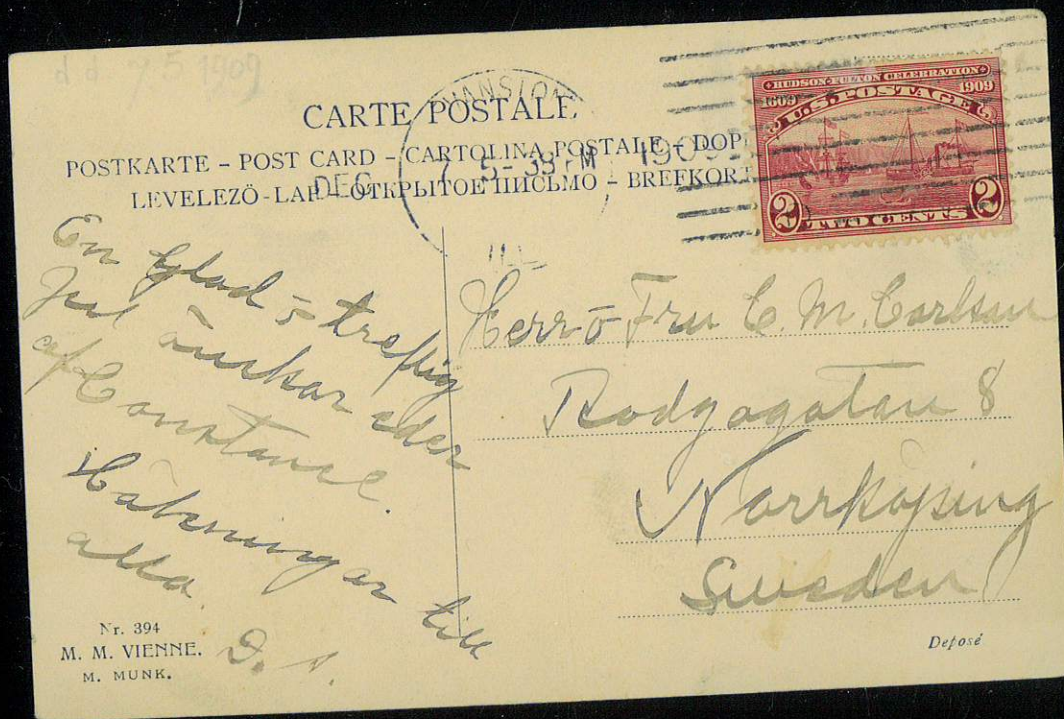 d.d. 7 5 1909
CARTE POSTALE
POSTKARTE – POST CARD – CARTOLINA POSTALE – DOP
LEVELEZÖ-LAP – ОТКРЫТОЕ ПИСЬМО – BREFKORT
VANSTON
DEC 7 5-38 PM 1909
ILL
HUDSON-FULTON CELEBRATION
1609 1909
U.S. POSTAGE
2 TWO CENTS 2
En glad o treflig
Jul önskar eder
af Constance.
Hälsningar till
alla.
D. S.
Herr o Fru C. M. Carlson
Rodgagatan 8
Norrköping
Sweden
Nr. 394
M. M. VIENNE.
M. MUNK.
Deposé